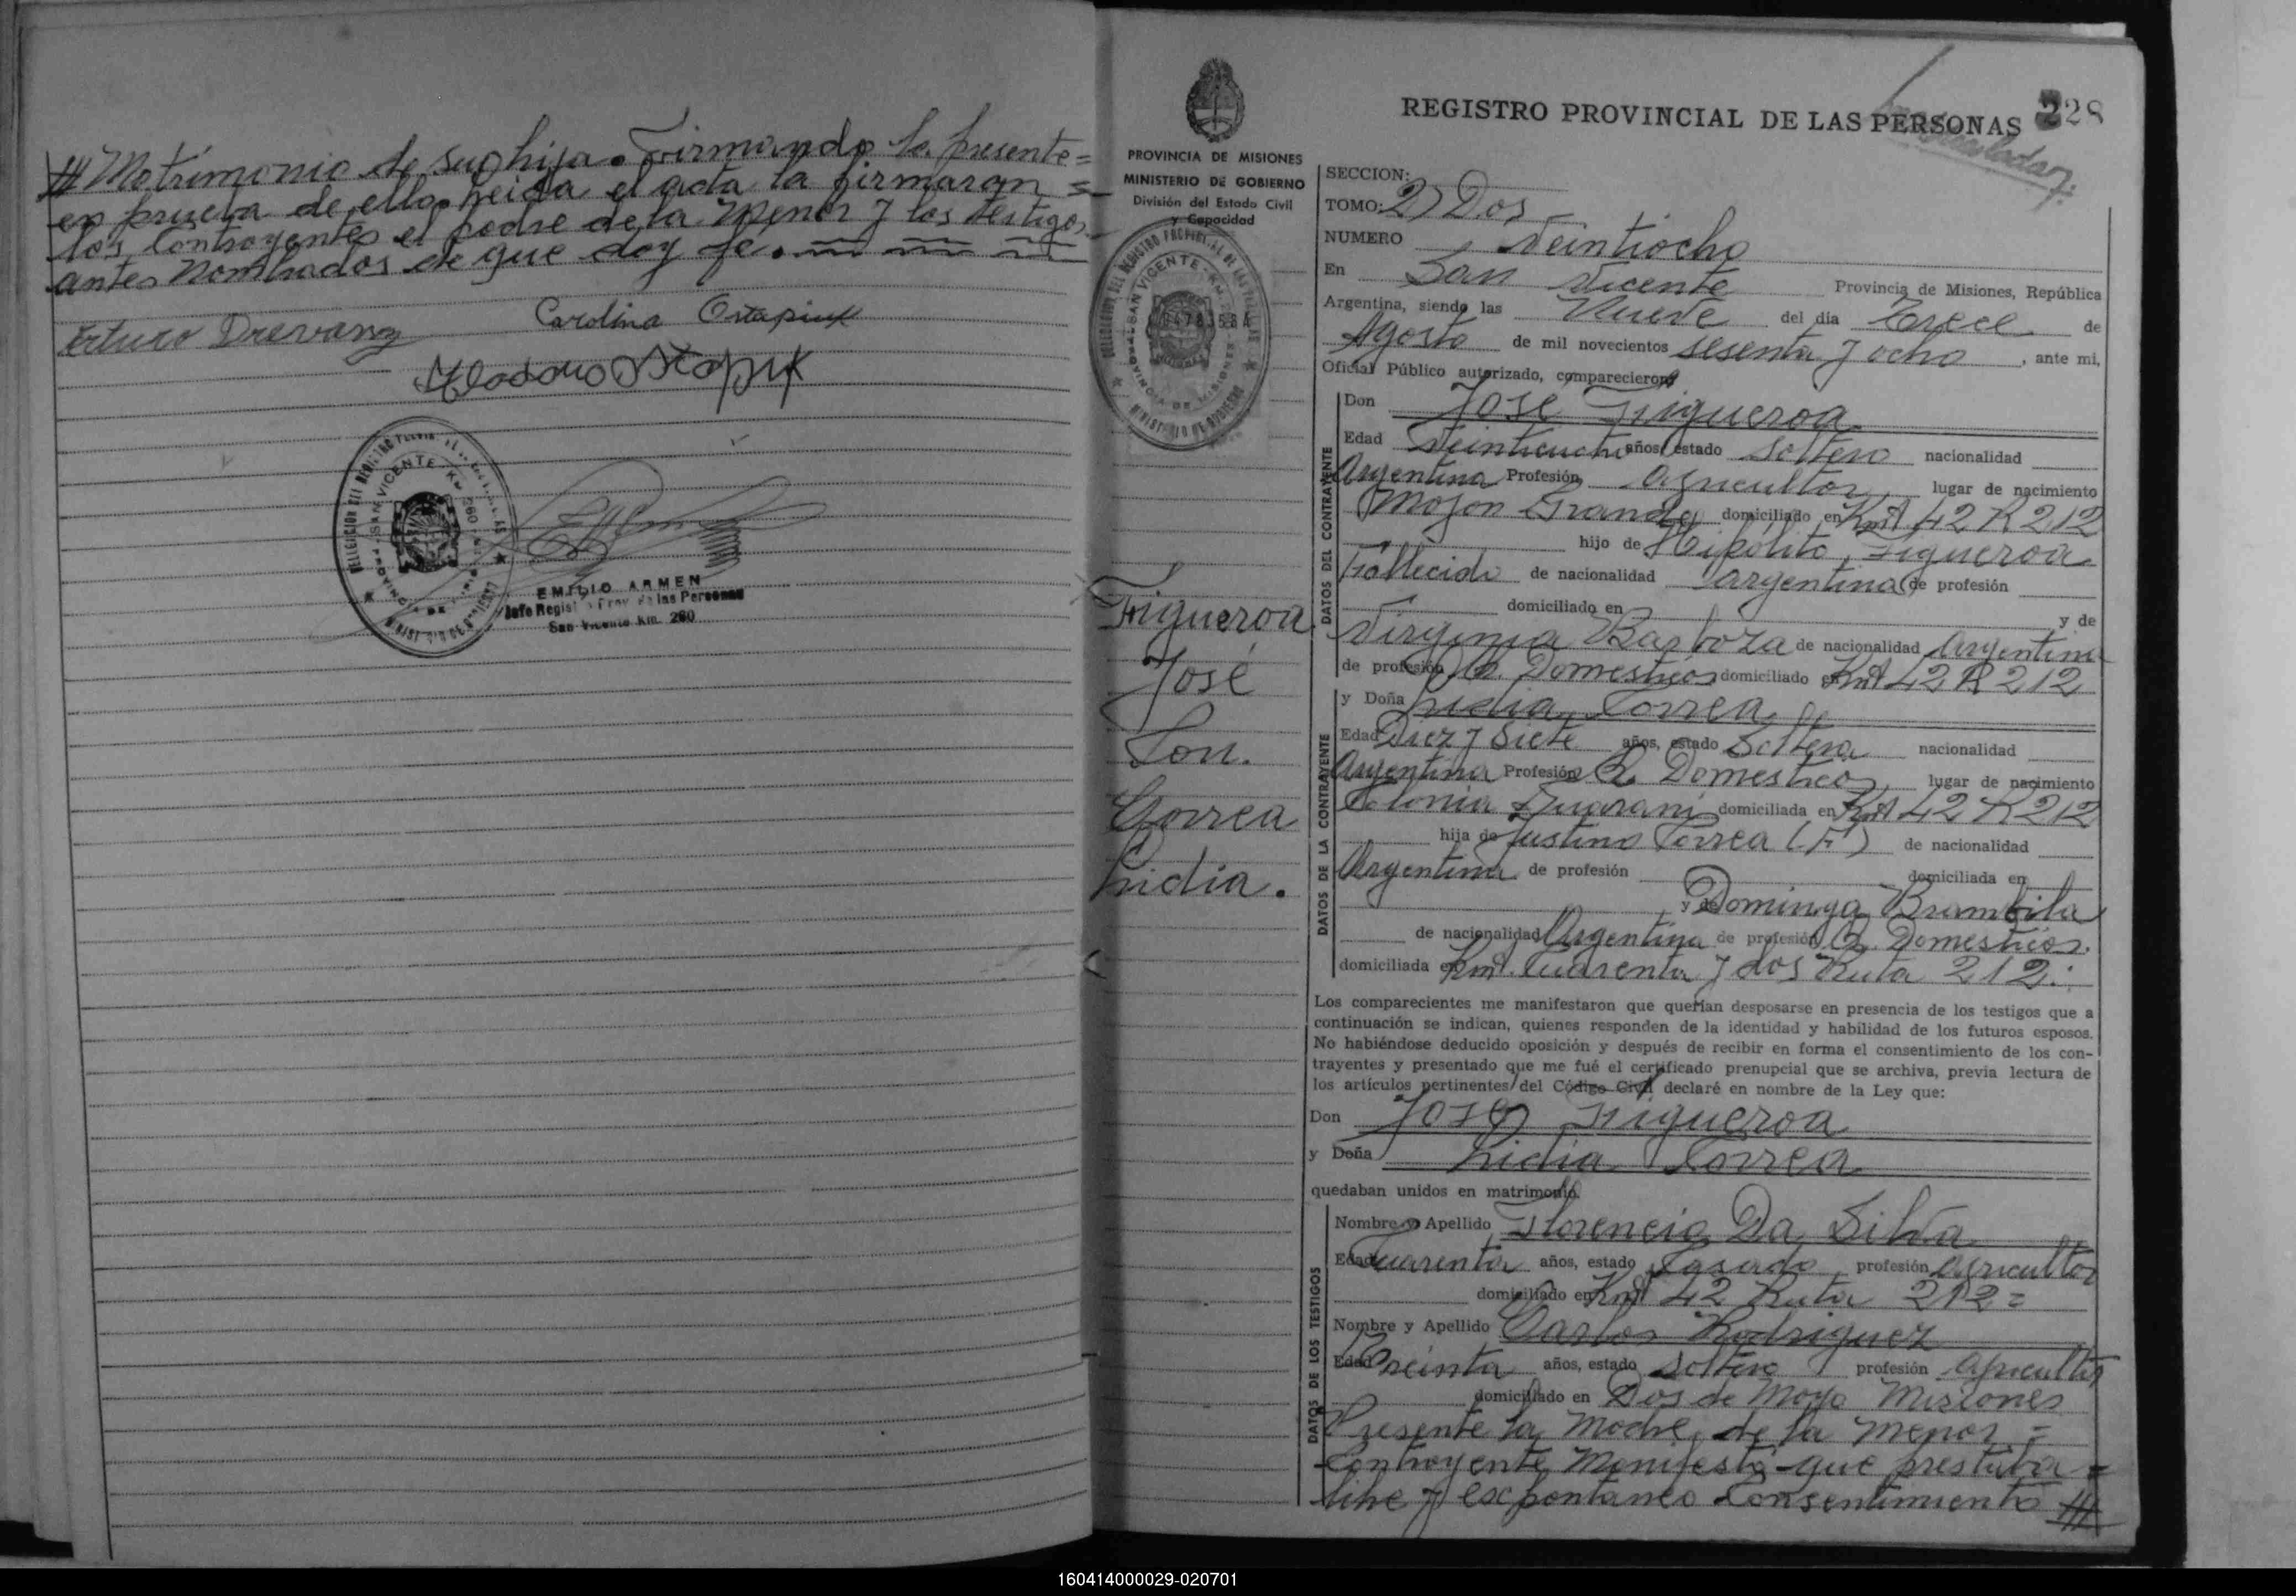 /// Matrimonio de sug hija. Firmando la presente =
en prueva de ello. Leida el acta la firmaron =
los Contrayentes el padre de la Menor y los testigos
antes Nombrados de que doy fe.
Arturo Drevanz
Carolina Ostapiux
DELEGACION DEL REGISTRO PROVINCIAL DE LAS PERSONAS
SAN VICENTE - KM 260
MINISTERIO DE GOBIERNO
EMILIO ARMEN
Jefe Registro Prov. de las Personas
San Vicente Km. 260
228
REGISTRO PROVINCIAL DE LAS PERSONAS
PROVINCIA DE MISIONES
MINISTERIO DE GOBIERNO
División del Estado Civil
y Capacidad
DELEGACION DEL REGISTRO PROVINCIAL DE LAS PERSONAS
SAN VICENTE - KM. 260
PROVINCIA DE MISIONES
MINISTERIO DE GOBIERNO
Figueroa
José
Con.
Correa
Lidia.
SECCION:
TOMO: 2) Dos
NUMERO Veintiocho
En San Vicente Provincia de Misiones, República
Argentina, siendo las Nueve del día Trece de
Agosto de mil novecientos sesenta y ocho, ante mi,
Oficial Público autorizado, comparecieron
DATOS DEL CONTRAYENTE
Don José Figueroa
Edad años, estado Soltero nacionalidad
Argentina Profesión Agricultor lugar de nacimiento
Mojon Grande domiciliado en Km 42 R 212
hijo de Hipolito Figueroa
Fallecido de nacionalidad argentina de profesión
domiciliado en y de
Virginia Barboza de nacionalidad Argentina
de profesión Q. Domesticos domiciliado en Km 42 R 212
DATOS DE LA CONTRAYENTE
y Doña Lidia Correa
Edad Diez y Siete años, estado Soltera nacionalidad
Argentina Profesión Q. Domesticos lugar de nacimiento
Colonia Guarani domiciliada en Km 42 R 212
hija de Justino Correa (F) de nacionalidad
Argentina de profesión domiciliada en
y de Dominga Brambila
de nacionalidad Argentina de profesión Q. Domesticos.
domiciliada en Km. Cuarenta y dos Ruta 212.
Los comparecientes me manifestaron que querían desposarse en presencia de los testigos que a
continuación se indican, quienes responden de la identidad y habilidad de los futuros esposos.
No habiéndose deducido oposición y después de recibir en forma el consentimiento de los con-
trayentes y presentado que me fué el certificado prenupcial que se archiva, previa lectura de
los artículos pertinentes del Código Civil declaré en nombre de la Ley que:
Don José Figueroa
y Doña Lidia Correa
quedaban unidos en matrimonio.
DATOS DE LOS TESTIGOS
Nombre y Apellido Florencio Da Silva
Edad Cuarenta años, estado Casado profesión Agricultor
domiciliado en Km 42 Ruta 212 =
Nombre y Apellido Carlos Rodriguez
Edad Treinta años, estado Soltero profesión Agricultor
domiciliado en Dos de Mayo Misiones
Presente la Madre de la Menor =
Contrayente Manifestó que prestaba =
libre y escpontaneo Consentimiento ///
160414000029-020701